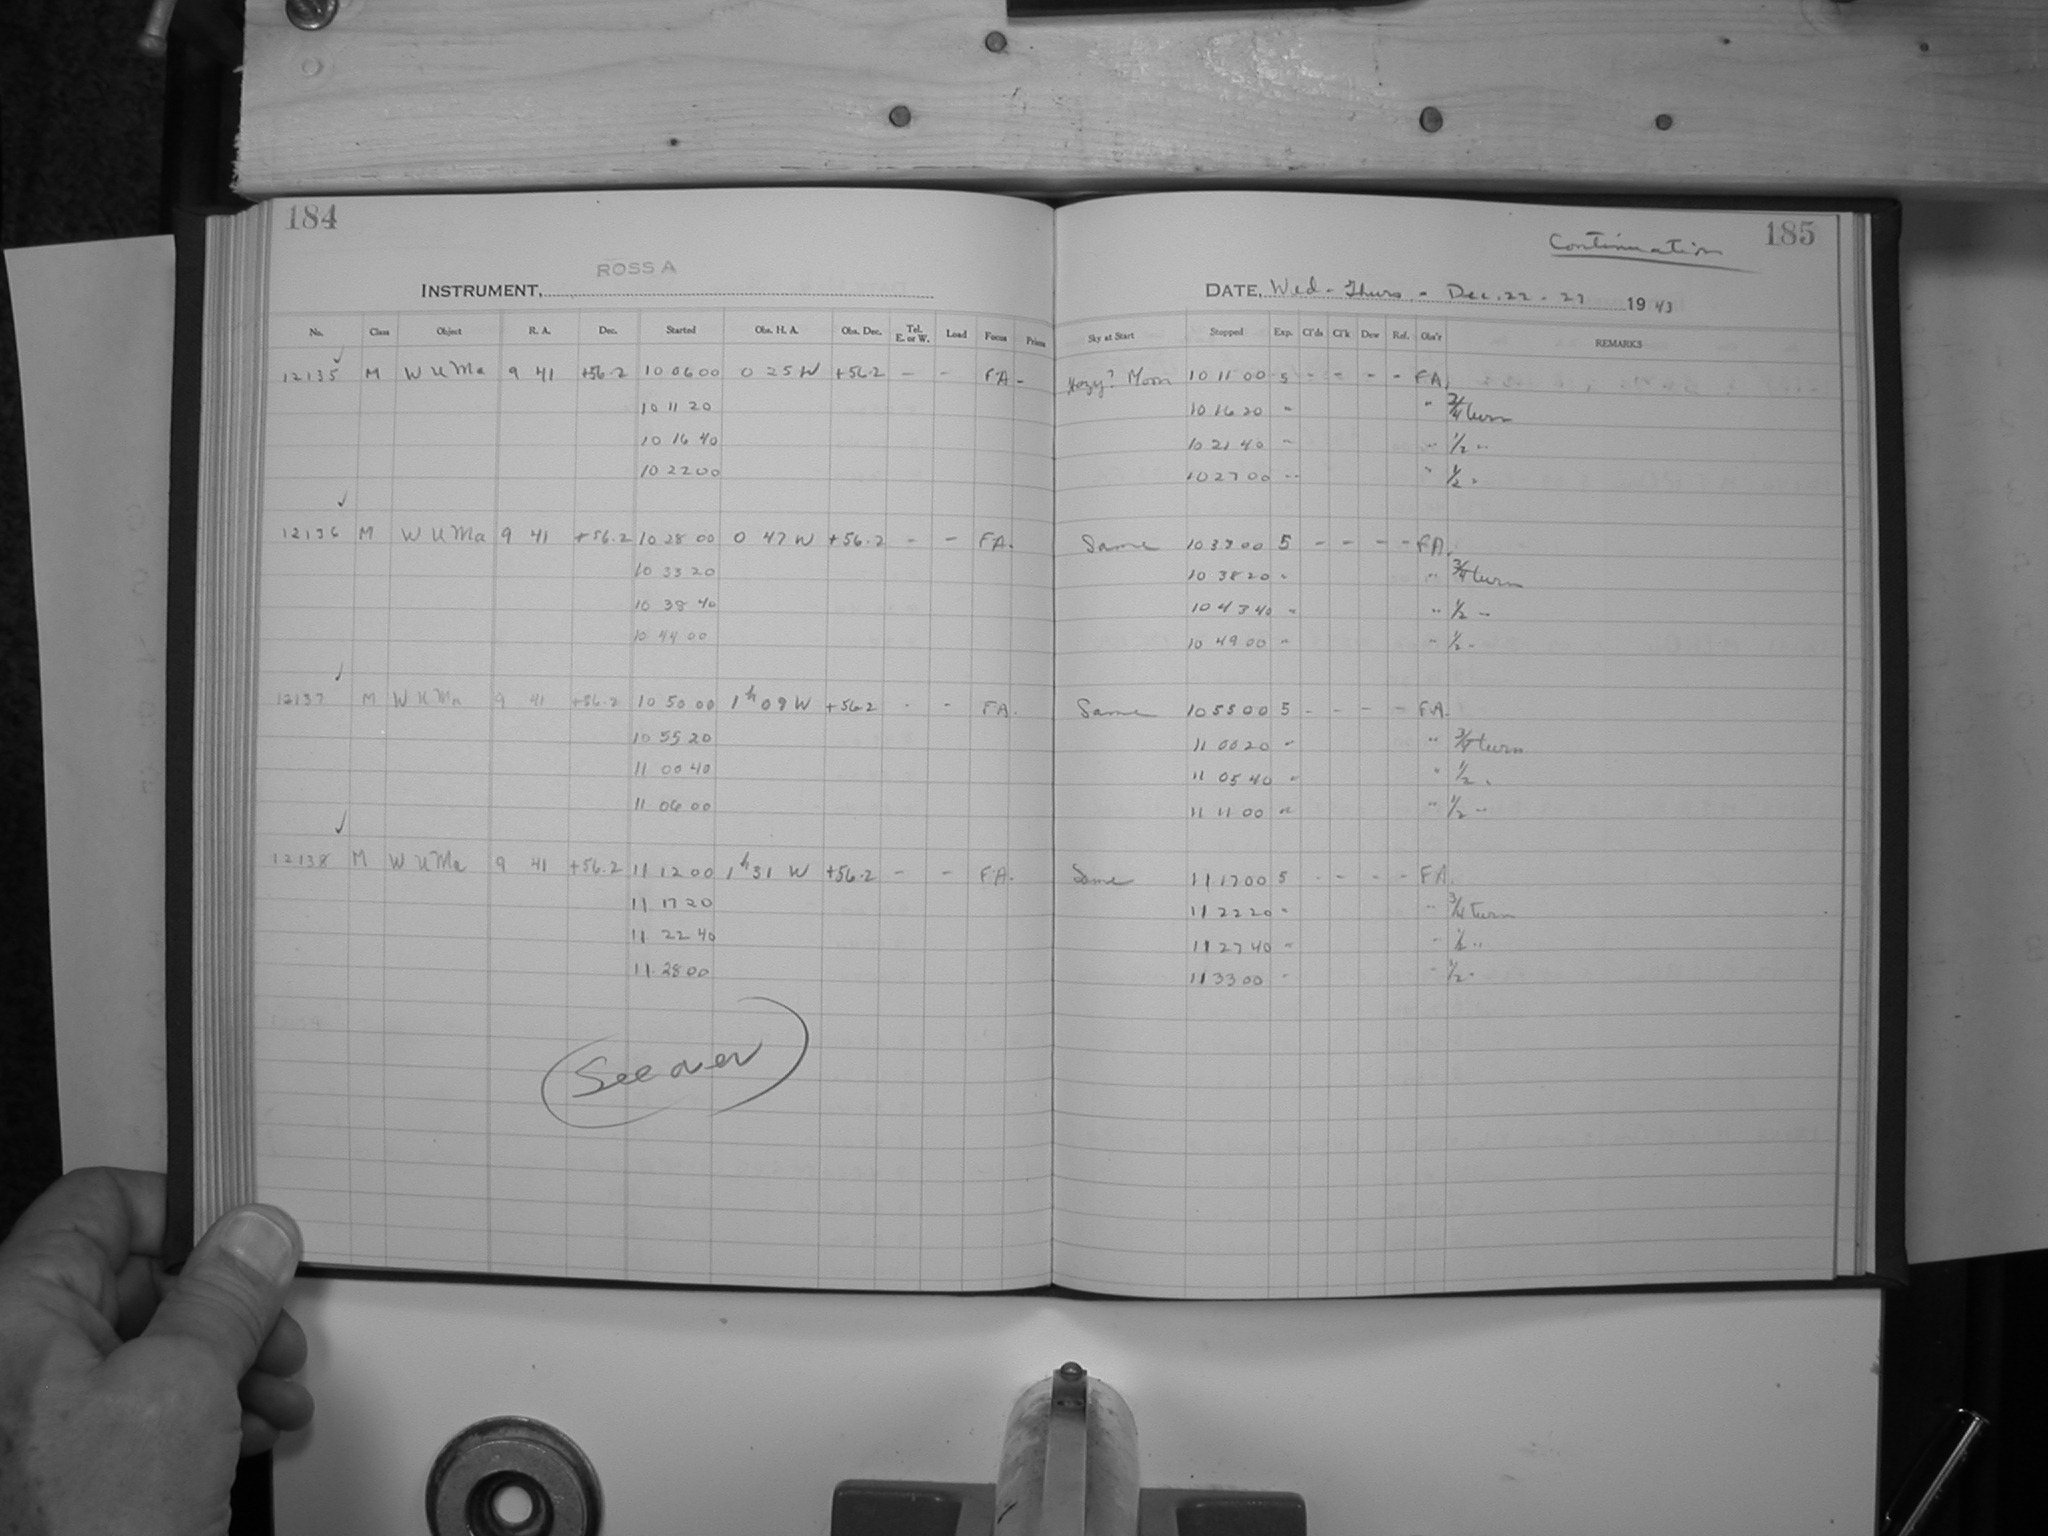 184
ROSS A
INSTRUMENT,
No. Class Object R. A. Dec. Started Obs. H. A. Obs. Dec. Tel. E. or W. Load Focus Prism
12135 M W U Ma 9 41 +56.2 10 06 00 0 25 W +56.2 - - FA -
10 11 20
10 16 40
10 22 00
12136 M W U Ma 9 41 +56.2 10 28 00 0 47 W +56.2 - - FA.
10 33 20
10 38 40
10 44 00
12137 M W U Ma 9 41 +56.2 10 50 00 1h 09 W +56.2 - - FA.
10 55 20
11 00 40
11 06 00
12138 M W U Ma 9 41 +56.2 11 12 00 1h 31 W +56.2 - - FA.
11 17 20
11 22 40
11 28 00
See over
Continuation 185
DATE, Wed - Thurs - Dec. 22 - 23 1943
Sky at Start Stopped Exp. Cl'ds Cl'k Dew Ref. Obs'r REMARKS
Hazy? Moon 10 11 00 5 - - - - FA.
10 16 20 " " 3/4 turn
10 21 40 " " 1/2 "
10 27 00 " " 1/2 "
Same 10 33 00 5 - - - - FA.
10 38 20 " " 3/4 turn
10 43 40 " " 1/2 "
10 49 00 " " 1/2 "
Same 10 55 00 5 - - - - FA.
11 00 20 " " 3/4 turn
11 05 40 " " 1/2 "
11 11 00 " " 1/2 "
Same 11 17 00 5 - - - - FA.
11 22 20 " " 3/4 turn
11 27 40 " " 1/2 "
11 33 00 " " 1/2 "